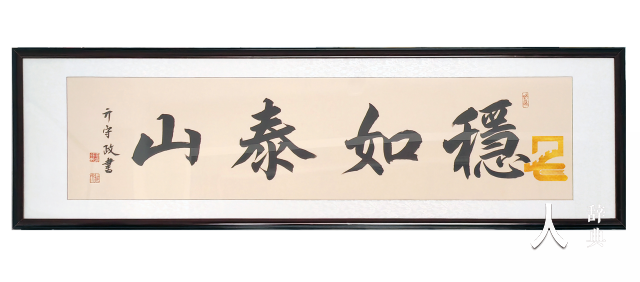 穩如泰山
亓守政書
人 辞典